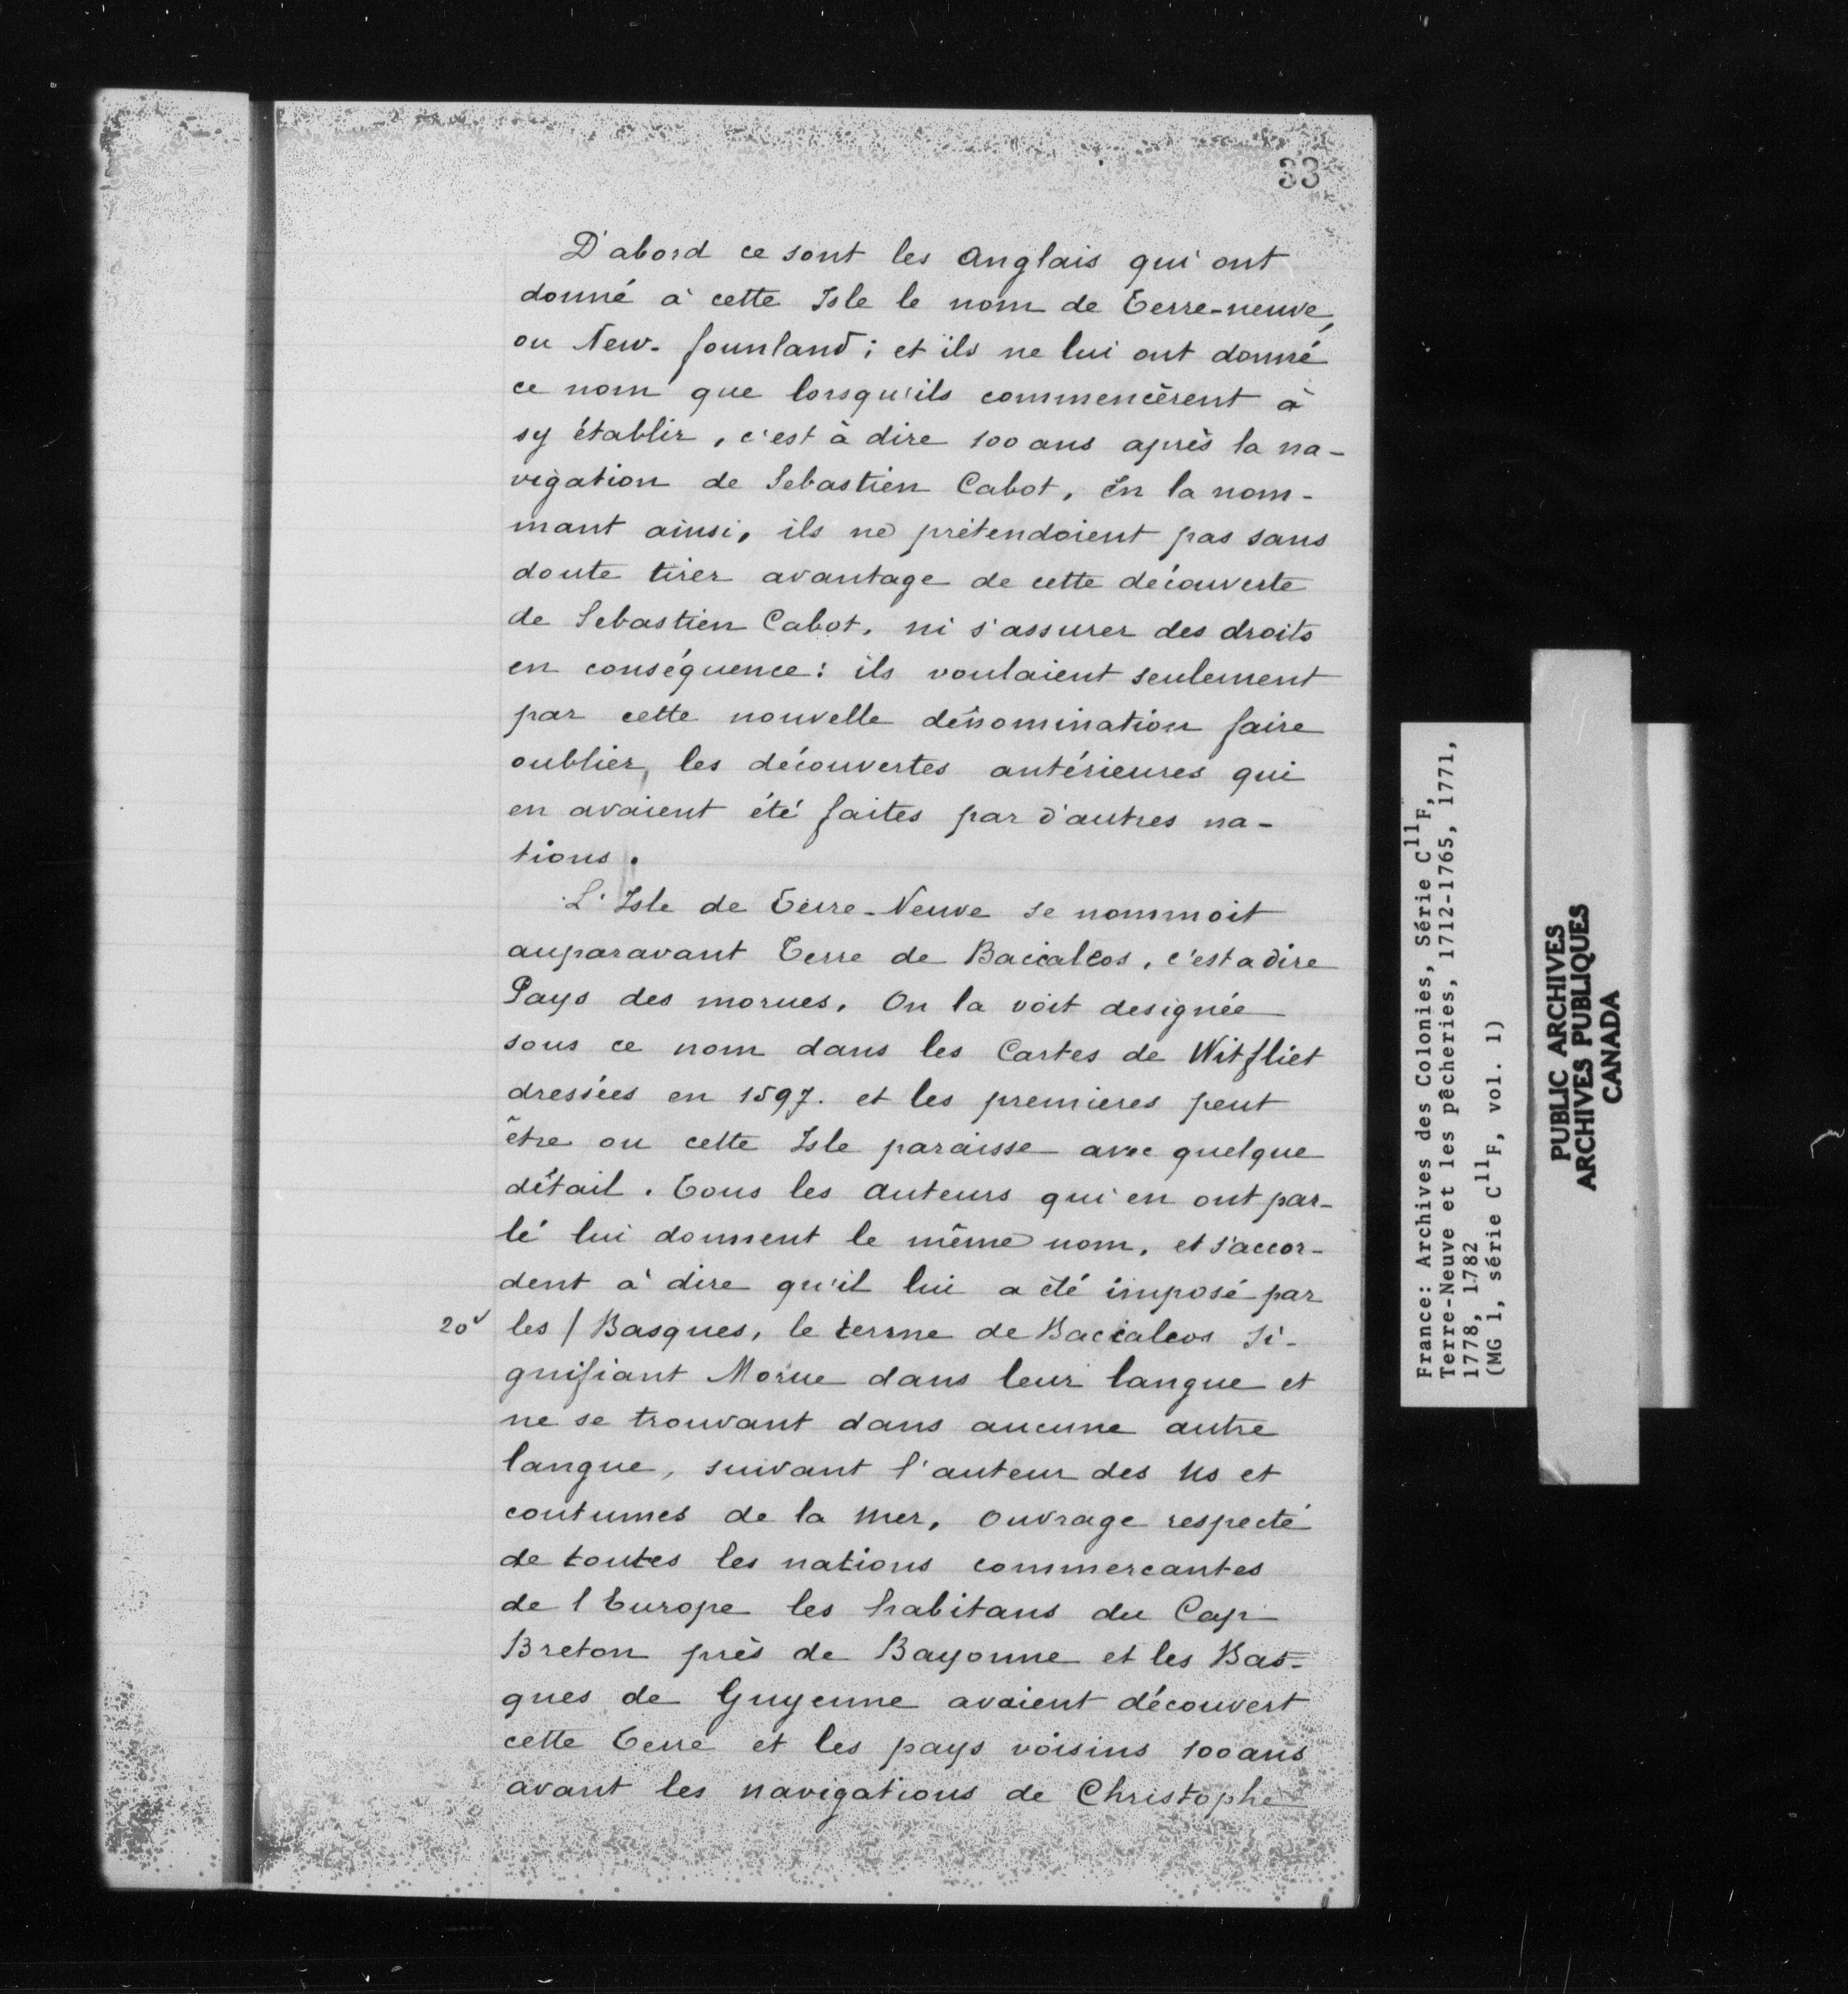 33
D'abord ce sont les Anglais qui ont
donné à cette Isle le nom de Terre-neuve,
ou New-founland; et ils ne lui ont donné
ce nom que lorsqu'ils commencèrent à
sy établir, c'est à dire 100 ans après la na-
vigation de Sebastien Cabot. En la nom-
mant ainsi, ils ne prétendoient pas sans
doute tirer avantage de cette découverte
de Sebastien Cabot, ni s'assurer des droits
en conséquence: ils voulaient seulement
par cette nouvelle dénomination faire
oublier, les découvertes antérieures qui
en avaient été faites par d'autres na-
tions.
L'Isle de Terre-Neuve se nommoit
auparavant Terre de Baccaleos, c'est a dire
Pays des morues. On la voit designée
sous ce nom dans les Cartes de Witfliet
dressées en 1597. et les premieres peut
être ou cette Isle paraisse avec quelque
détail. Tous les auteurs qui en ont par-
lé lui donnent le même nom, et s'accor-
dent à dire qu'il lui a été imposé par
20v les / Basques, le terme de Baccaleos si-
gnifiant Morue dans leur langue et
ne se trouvant dans aucune autre
langue, suivant l'auteur des us et
coutumes de la mer, ouvrage respecté
de toutes les nations commercantes
de l Europe les habitans du Cap
Breton près de Bayonne et les Bas-
ques de Guyenne avaient découvert
cette Terre et les pays voisins 100 ans
avant les navigations de Christophe
France: Archives des Colonies, Série C11F,
Terre-Neuve et les pêcheries, 1712-1765, 1771,
1778, 1782
(MG 1, série C11F, vol. 1)
PUBLIC ARCHIVES
ARCHIVES PUBLIQUES
CANADA